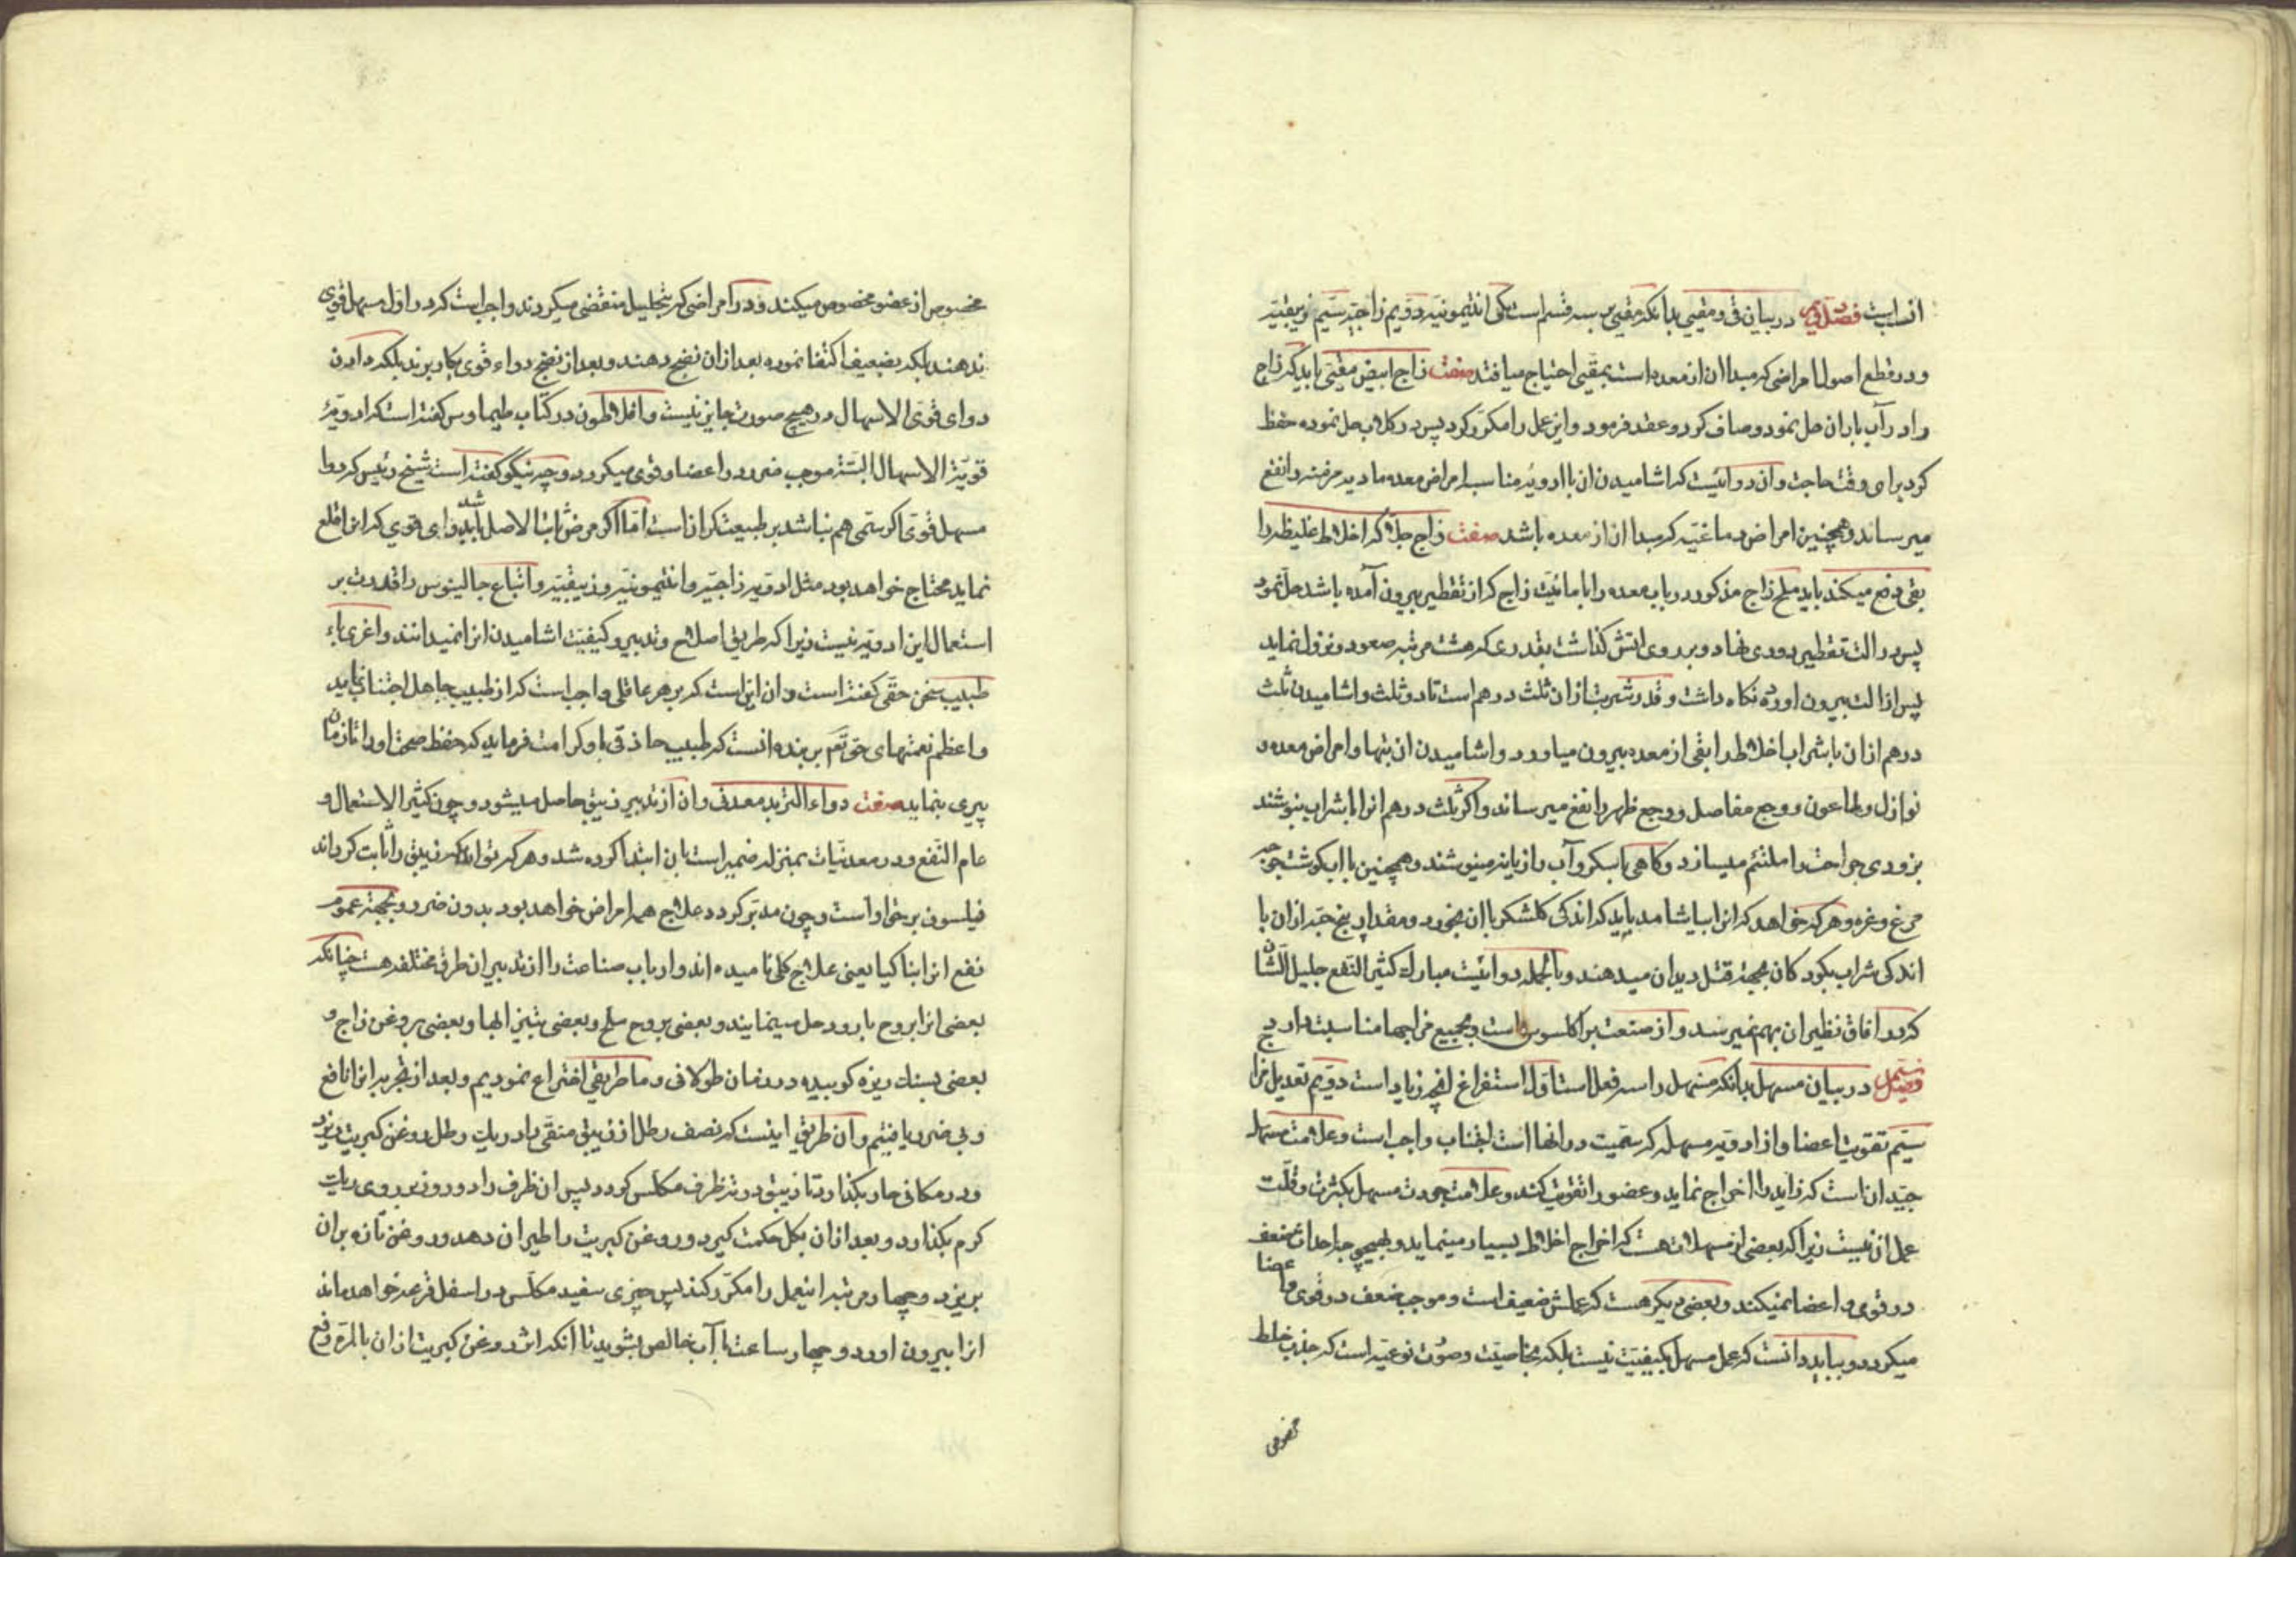 انسب است فصل دویم در بیان قی و مقیی بدانکه مقیی بر سه قسم است یکی انتیمونیه دویم زاجیه سیم زیبقیه
و در قطع اصول امراضی که مبدا آن از معده است بمقیی احتیاج میافتد صفت زاج ابیض مقیی باید که زاج
را در آب باران حل نمود و صاف کرد و عقد فرمود و این عمل را مکرر کرد پس در کلاب حل نموده حفظ
کرد برای وقت حاجت و آن دوائیست که اشامیدن آن با ادویهٔ مناسب امراض معده مادیه مزمنه را نفع
میرساند و همچنین امراض دماغیه که مبدا آن از معده باشد صفت زاج جلا که اخلاط غلیظه را
بقی دفع میکند باید ملح زاج مذکور در باب معده را با مائیت زاج که از تقطیر بیرون آمده باشد حل نمود
پس در الت تقطیر دوری نهاد و بر روی اتش کذاشت بقدری که هشت مرتبه صعود و نزول نماید
پس از الت بیرون اورده نکاه داشت و قدر شربت از آن ثلث درهم است تا دو ثلث و اشامیدن ثلث
درهم از ان با شراب اخلاط را بقی از معده بیرون میاورد و اشامیدن ان بتنها و امراض معده و
نوازل و طاعون و وجع مفاصل و وجع ظهر را نفع میرساند و اکر ثلث درهم انرا با شراب بنوشند
بزودی جراحت را ملتئم میسازد و کاهی با سکر و آب رازیانه مینوشند و همچنین با ابکوشت جوجه
مرغ و غره و هر که خواهد که انرا بیاشامد باید که اندکی کلشکر با ان بخورد و مقدار پنج حبه از ان با
اندکی شراب بکودکان بجهة قتل دیدان میدهند و بالجمله دوائیست مبارک کثیر النفع جلیل الشان
که در افاق نظیر ان بهم نمیرسد و از صنعت براکلسوس است و بجمیع مزاجها مناسبت دارد ج
فصل سیم در بیان مسهل بدانکه مسهل را سه فعل است اول استفراغ انچه زیاد است دویم تعدیل مزاج
سیم تقویت اعضا و از ادویه مسهله که سمیت در انها است اجتناب واجب است و علامت مسهل
جید ان است که زاید را اخراج نماید و عضو را تقویت کند و علامت جودت مسهل بکثرت و قلت
عمل ان نیست زیرا که بعضی از مسهلات هست که اخراج اخلاط بسیار مینماید و بهیچ وجه احداث ضعف
در قوی و اعضا نمیکند و بعضی دیکر هست که عملش ضعیف است و موجب ضعف در قوی و اعضا
میکردد و بباید دانست که عمل مسهل بکیفیت نیست بلکه بخاصیت و صورت نوعیه است که جذب خلط
مخصوص
مخصوص از عضو مخصوص میکند و در امراضی که بتحلیل منقضی میکردند واجب است که در اول مسهل قوی
ندهند بلکه بضعیف اکتفا نموده بعد از ان نضج دهند و بعد از نضج دواء قوی بکار برند بلکه دادن
دوای قوی الاسهال در هیچ صورت جایز نیست و افلاطون در کتاب طیماوس کفته است که ادویهٔ
قویة الاسهال البته موجب ضرر در اعضا و قوی میکردد و چه نیکو کفته است شیخ رئیس که دوا
مسهل قوی اکر سمی هم نباشد بر طبیعت کران است اما اکر مرض ثابت الاصل باشد بدوای قوی که انرا قلع
نماید محتاج خواهد بود مثل ادویه زاجیه و انتیمونیه و زیبقیه و اتباع جالینوس را قدرت بر
استعمال این ادویه نیست زیرا که طریق اصلاح و تدبیر و کیفیت اشامیدن انرا نمیدانند و اغریباء
طبیب سخن حقی کفته است و ان این است که بر هر عاقلی واجب است که از طبیب جاهل اجتناب نماید
و اعظم نعمتهای حق تعم بر بنده انست که طبیب حاذقی باو کرامت فرماید که حفظ صحت او را تا زمان
پیری بنماید صفت دواء التربد معدنی و ان از تدبیر زیبق حاصل میشود و چون کثیر الاستعمال و
عام النفع و در معدنیات بمنزله خمیر است بان ابتدا کرده شد و هر که تواند که زیبق را ثابت کرداند
فیلسوف برحق او است و چون مدبر کردد علاج همه امراض خواهد بود بدون ضرر و بجهة عموم
نفع انرا بناکیا یعنی علاج کلی نامیده اند و ارباب صناعت را از تدبیر ان طرق مختلفه هست چنانکه
بعضی انرا بروح بارود حل مینمایند و بعضی بروح ملح و بعضی بتیزابها و بعضی بروغن زاج و
بعضی بسنک ریزه کوبیده در زمان طولانی و ما طریقی اختراع نمودیم و بعد از تجربه انرا نافع
و بی ضرر یافتیم و ان طریق اینست که نصف رطل از زیبق منقی با در یک رطل روغن کبریت بریزد
و در مکانی حار بکذارد تا زیبق در ته ظرف مکلس کردد پس ان ظرف را دو روز بر روی ریک
کرم بکذارد و بعد از ان بکل حکمت کیرد و روغن کبریت را طیران دهد و روغن تازه بران
بریزد و چهار مرتبه اینعمل را مکرر کند پس چیزی سفید مکلس در اسفل قرعه خواهد ماند
انرا بیرون اورد و چهار ساعت با آب خالص بشوید تا انکه اثر روغن کبریت از ان بالمره رفع